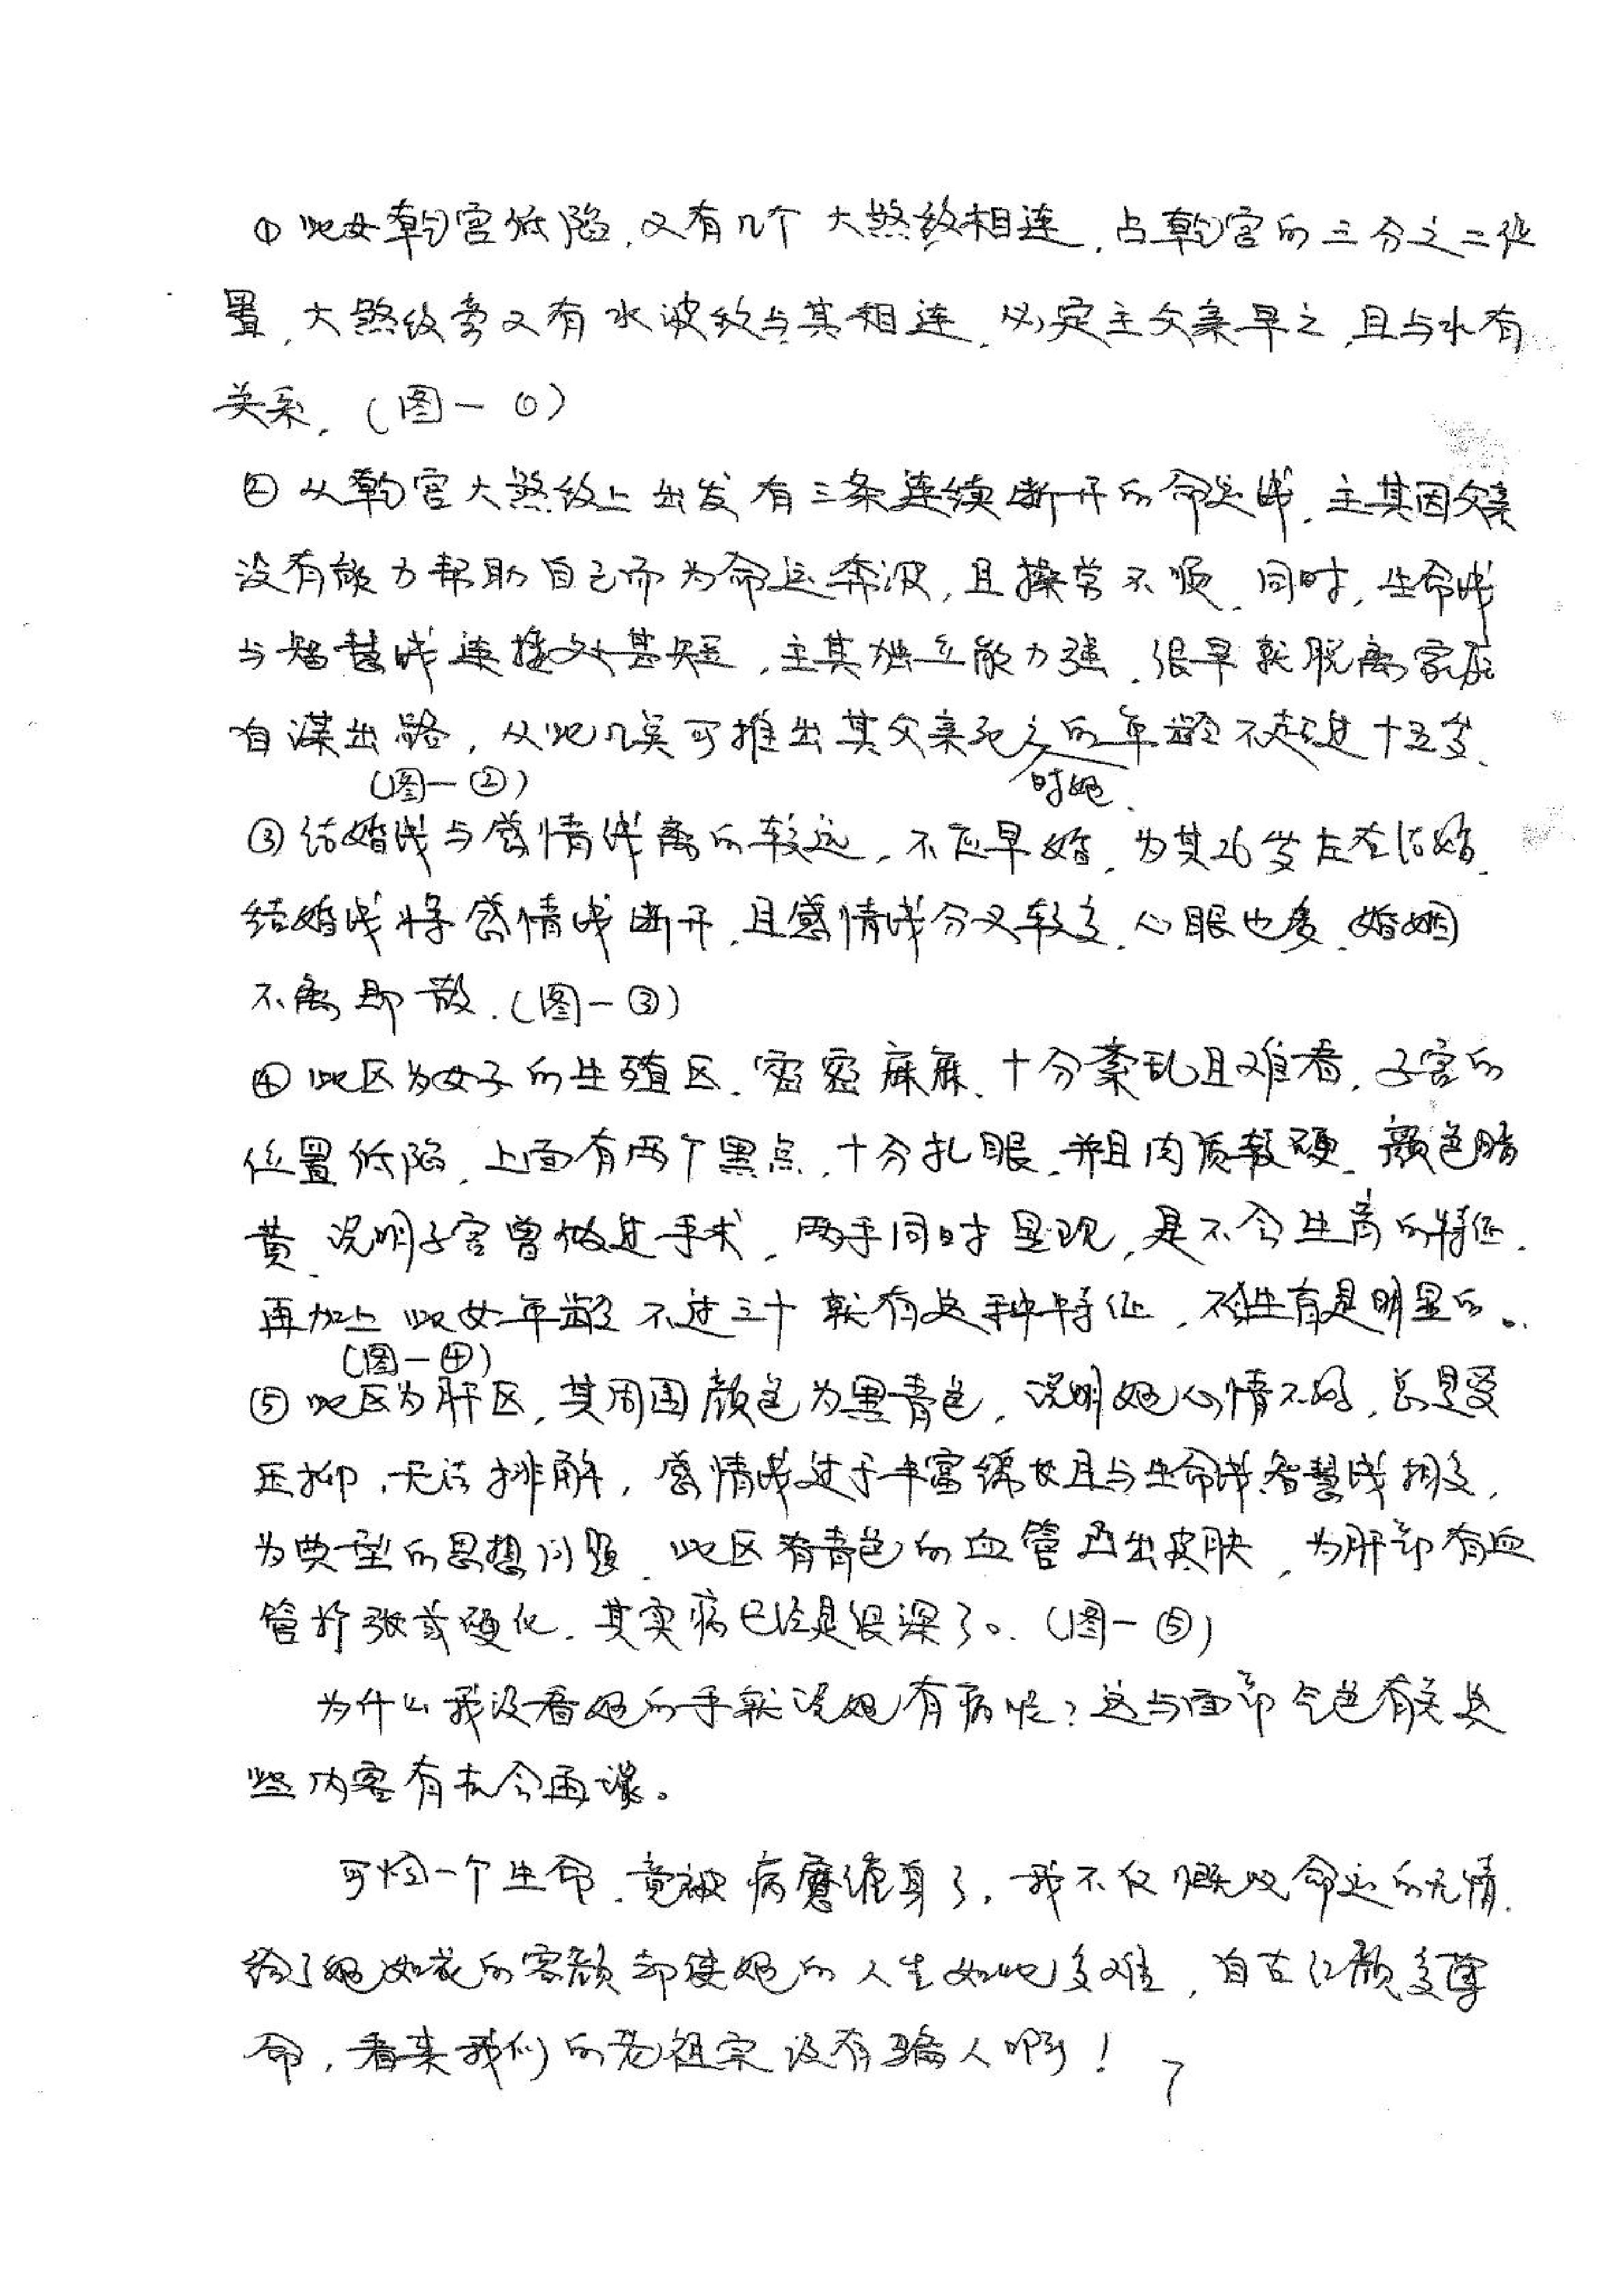 ①此女乾宫低陷,又有几个大煞纹相连,占乾宫的三分之二位
置,大煞纹旁又有水波纹与其相连,必定主父亲早亡,且与水有
关系.(图一①)
②从乾宫大煞纹上出发有三条连续断开的命运线,主其因父亲
没有能力帮助自己而为命运奔波,且操劳不顺.同时,生命线
与智慧线连接处甚短,主其独立能力强.很早就脱离家庭
自谋出路,从此几点可推出其父亲死之时她的年龄不超过十五岁.
(图一②)
③结婚线与感情线离的较远,不应早婚,为其26岁左右结婚.
结婚线将感情线断开,且感情线分叉较多.心眼也多.婚姻
不离即散.(图一③)
④此区为女子的生殖区.密密麻麻、十分紊乱且难看,子宫的
位置低陷,上面有两个黑点,十分扎眼.并且肉质较硬.颜色暗
黄.说明子宫曾做过手术,两手同时显现,是不会生育的特征.
再加上此女年龄不过三十就有这种特征,不生育是明显的。
(图一④)
⑤此区为肝区,其周围颜色为黑青色,说明她心情不好,总是受
压抑,无法排解,感情线过于丰富绵长且与生命线智慧线相交,
为典型的思想问题.此区有青色的血管凸出皮肤,为肝部有血
管扩张或硬化.其实病已经是很深了。(图一⑤)
为什么我没看她的手就说她有病呢?这与面部气色有关这
些内容有机会再谈。
可怜一个生命.竟被病魔缠身了.我不仅慨叹命运的无情.
给了她如花的容颜却使她的人生如此多难,自古红颜多薄
命,看来我们的老祖宗没有骗人啊!
7